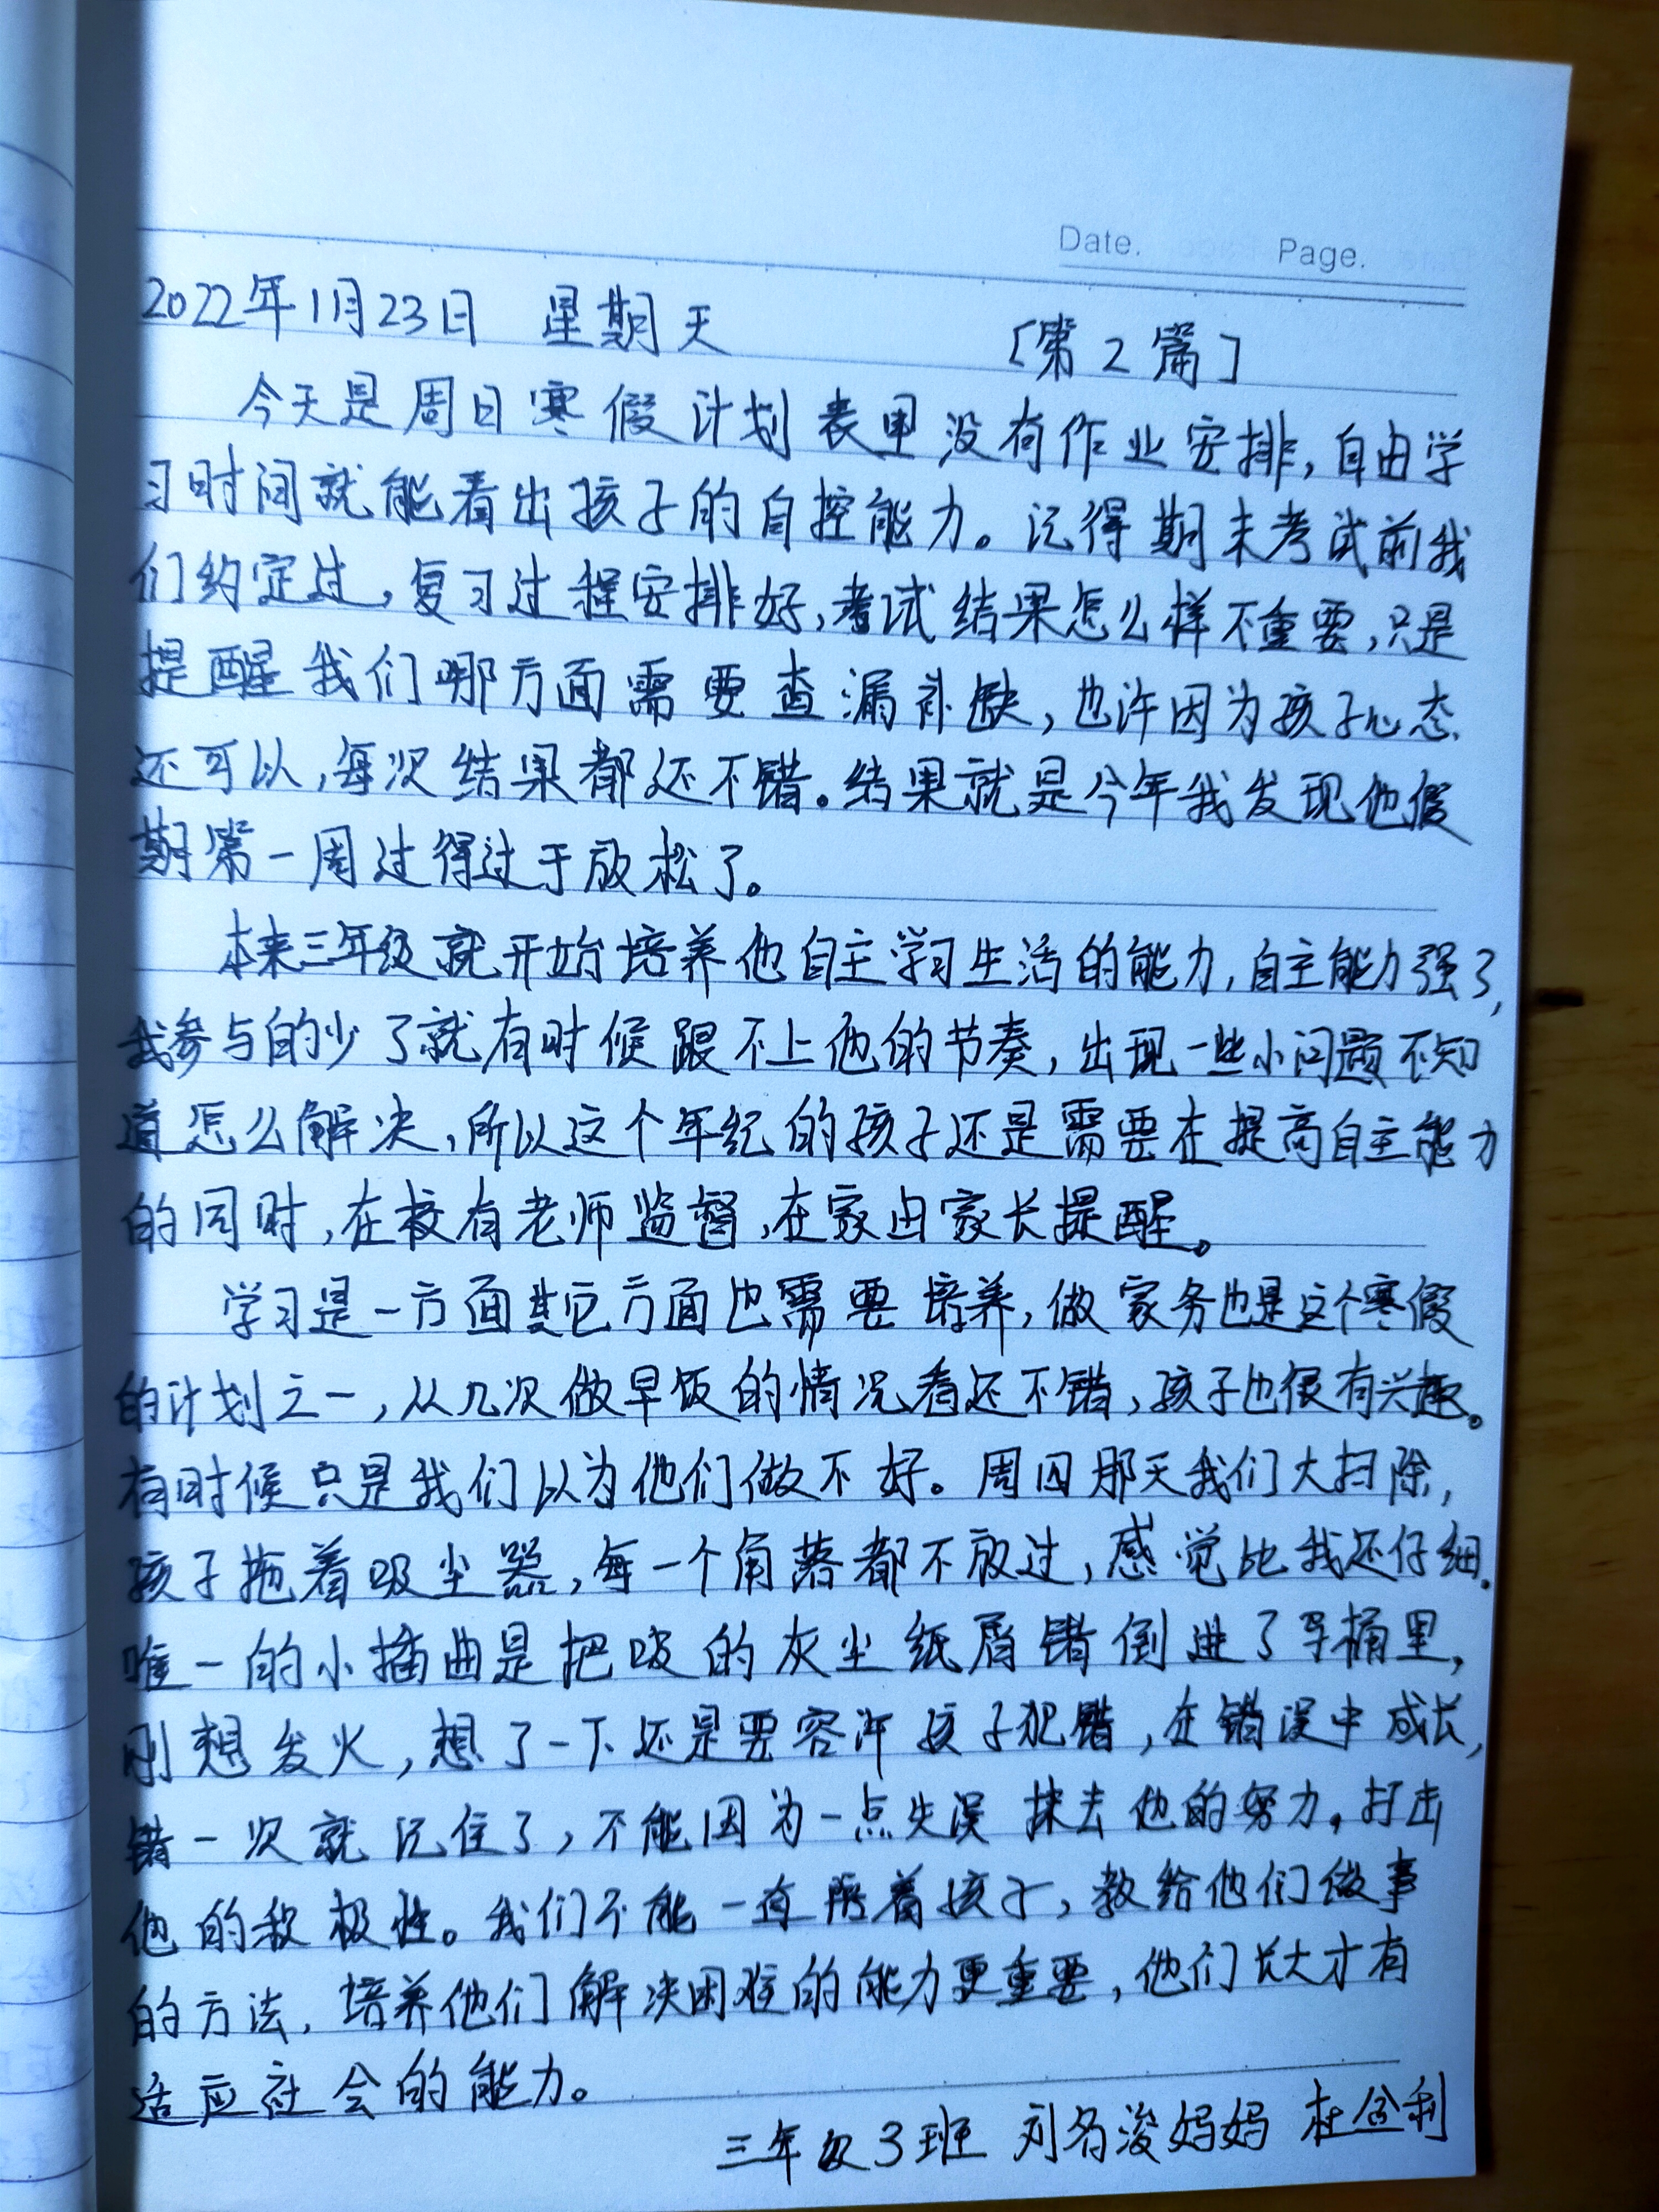 Date. Page.
2022年1月23日 星期天 [第2篇]
今天是周日寒假计划表里没有作业安排,自由学
习时间就能看出孩子的自控能力。记得期末考试前我
们约定过,复习过程安排好,考试结果怎么样不重要,只是
提醒我们哪方面需要查漏补缺,也许因为孩子心态
还可以,每次结果都还不错。结果就是今年我发现他假
期第一周过得过于放松了。
本来三年级就开始培养他自主学习生活的能力,自主能力强了,
我参与的少了就有时候跟不上他的节奏,出现一些小问题不知
道怎么解决,所以这个年纪的孩子还是需要在提高自主能力
的同时,在校有老师监督,在家由家长提醒。
学习是一方面其它方面也需要培养,做家务也是这个寒假
的计划之一,从几次做早饭的情况看还不错,孩子也很有兴趣。
有时候只是我们以为他们做不好。周四那天我们大扫除,
孩子拖着吸尘器,每一个角落都不放过,感觉比我还仔细.
唯一的小插曲是把吸的灰尘纸屑错倒进了桶里,
刚想发火,想了一下还是要容许孩子犯错,在错误中成长,
错一次就记住了,不能因为一点失误抹去他的努力,打击
他的积极性。我们不能一直陪着孩子,教给他们做事
的方法,培养他们解决困难的能力更重要,他们长大才有
适应社会的能力。
三年级3班 刘名浚妈妈 杜金利